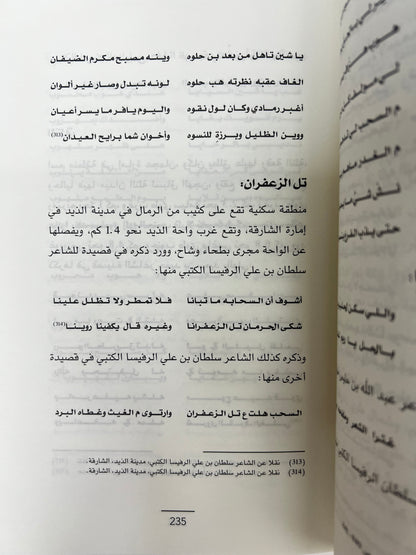 يا شين تاهل من بعد بن حلوه وينه مصبح مكرم الضيفان
الغاف عقبه نظرته هب حلوه لونه تبدل وصار غير ألوان
أغبر رمادي وكان لول نقوه واليوم يافر ما يسر أعيان
ووين الظليل ويرزةٍ للنسوه وأخوان شما برايح العيدان(313)
تل الزعفران:
منطقة سكنية تقع على كثيب من الرمال في مدينة الذيد في
إمارة الشارقة، وتقع غرب واحة الذيد نحو 1.4 كم، ويفصلها
عن الواحة مجرى بطحاء وشاح، وورد ذكره في قصيدة للشاعر
سلطان بن علي الرفيسا الكتبي منها:
أشوف أن السحابه ما تبانا فلا تمطر ولا تظلل علينا
شكى الحرمان تل الزعفرانا وغيره قال يكفينا روينا(314)
وذكره كذلك الشاعر سلطان بن علي الرفيسا الكتبي في قصيدة
أخرى منها:
السحب هلت ع تل الزعفران وارتوى م الغيث وغطاه البرد
(313) نقلا عن الشاعر سلطان بن علي الرفيسا الكتبي، مدينة الذيد، الشارقة.
(314) نقلا عن الشاعر سلطان بن علي الرفيسا الكتبي، مدينة الذيد، الشارقة.
235